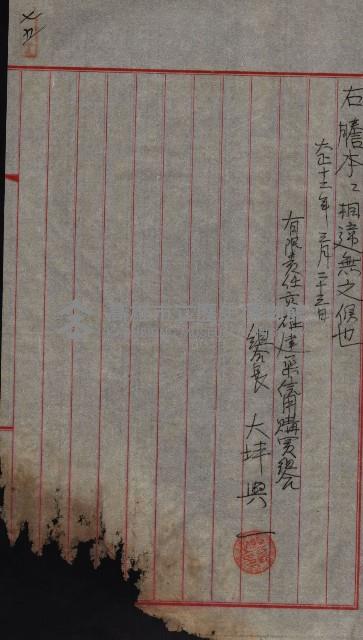 右謄本ニ相違無之候也
大正十二年三月二十三日
有限責任高雄建築信用購買組合
組合長 大坪與一